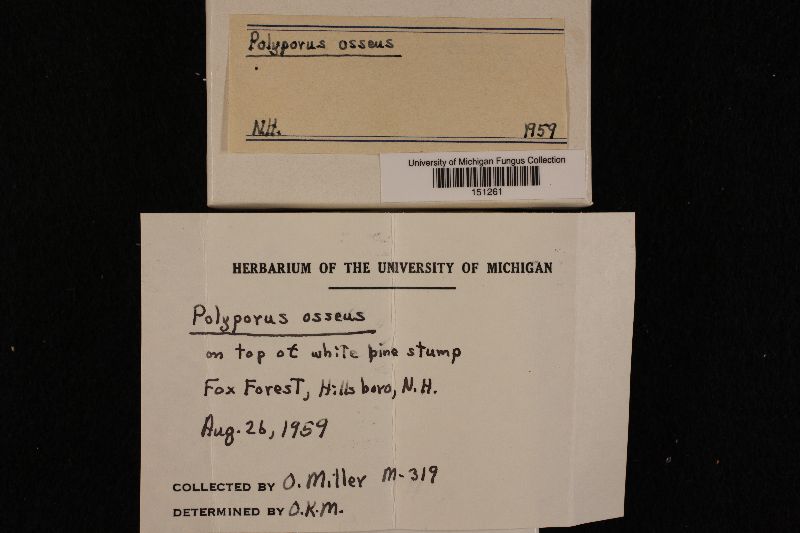 Polyporus osseus
N.H. 1959
University of Michigan Fungus Collection
151261
HERBARIUM OF THE UNIVERSITY OF MICHIGAN
Polyporus osseus
on top of white pine stump
Fox Forest, Hillsboro, N.H.
Aug. 26, 1959
COLLECTED BY O. Miller M-319
DETERMINED BY O.K.M.